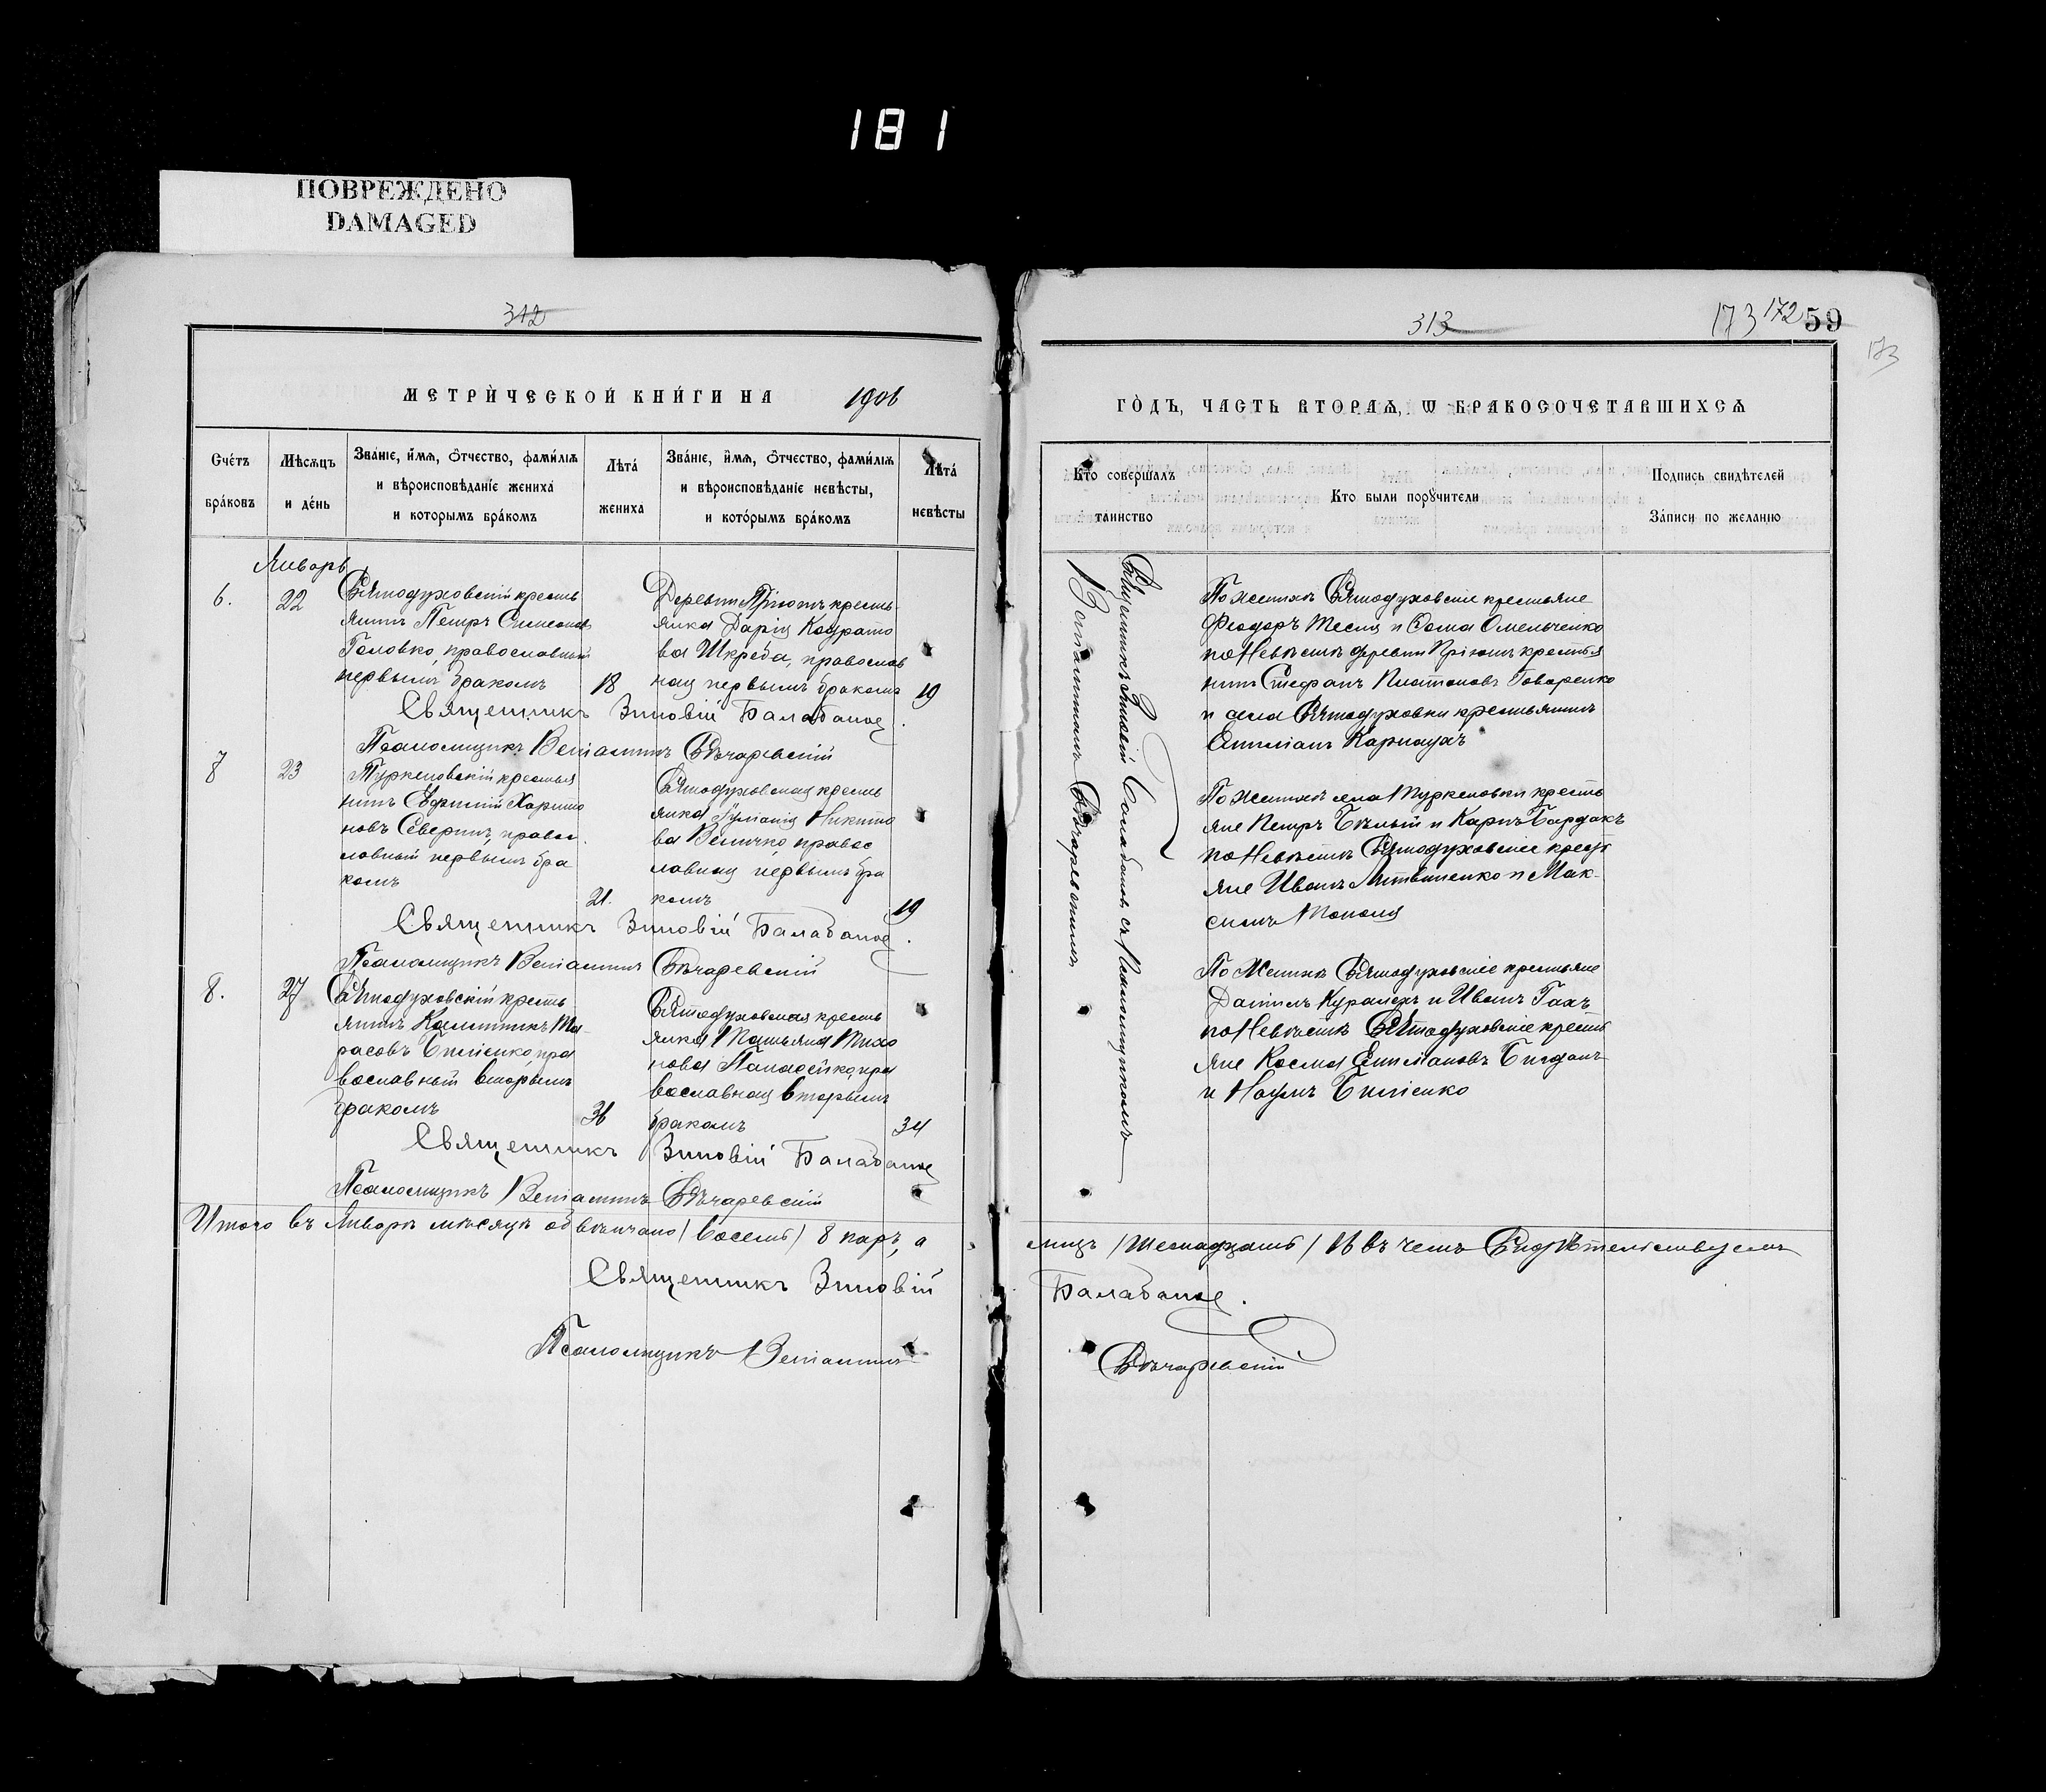 181
ПОВРЕЖДЕНО
DAMAGED
312
МЕТРИ́ЧЕСКОЙ КНИ́ГИ НА 1906
Сче́тъ бра́ковъ
Мѣ́сѧцъ и де́нь
Зва́нїе, и́мѧ, ѻ́тчество, фами́лїѧ
и вѣроисповѣ́данїе жениха̀
и которымъ бра́комъ
Лѣта́ жениха̀
Зва́нїе, и́мѧ, ѻ́тчество, фами́лїѧ
и вѣроисповѣ́данїе невѣ́сты,
и кото́рымъ бра́комъ
Лѣта́ невѣ́сты
Январь
6. 22
Святодуховскій кресть
янинъ Петръ Симеоновъ
Головко, православный
первымъ бракомъ 18
Деревни Пріютъ кресть
янка Дарія Кондрато
ва Шкреба, православ
ная первымъ бракомъ 19
Священникъ Зиновій Балабанов.
Псаломщикъ Веніаминъ Овчаревскій
7 23
Туркеновскій крестья
нинъ Евфимій Харито
новъ Северинъ, правос
лавный первымъ бра
комъ 21.
Святодуховская кресть
янка Іуліанія Никито
ва Величко правос
лавная первымъ бра
комъ 19
Священникъ Зиновій Балабанов.
Псаломщикъ Веніаминъ Овчаревскій
8. 27
Святодуховскій кресть
янинъ Каллиникъ Та-
расовъ Биліенко, пра
вославный вторымъ
бракомъ 36
Святодуховская кресть
янка Татьяна Тихо
нова Панасейко, пра
вославная вторымъ
бракомъ 34
Священникъ Зиновій Балабанов
Псаломщикъ Веніаминъ Овчаревскій
Итого въ Январѣ мѣсяцѣ обвѣнчано (восемь) 8 паръ, а
Священникъ Зиновій
Псаломщикъ Веніаминъ
313
173 172 59
173
ГО́ДЪ, ЧАСТЬ ВТОРАѦ, Ѡ БРАКОСОЧЕТАВШИХСѦ
Кто̀ соверша́лъ таинство
Кто были порꙋ́чители
Подпись свидѣ́телей
За́писи по желанїю
Священникъ Зиновій Балабановъ съ Псаломщикомъ
Веніаминомъ Овчаревскимъ
По Женихѣ Святодуховскіе крестьяне
Феодоръ Тесля и Сома Омельченко
по Невѣстѣ деревни Пріютъ крестья
нинъ Стефанъ Платоновъ Говоренко
и села Святодуховки крестьянинъ
Емиліанъ Карнаухъ
По Женихѣ села Туркеновки кресть
яне Петръ Бѣлый и Карпъ Бардакъ
по Невѣстѣ Святодуховскіе крест
яне Иванъ Литвиненко и Мак-
симъ Тополя
По Женихѣ Святодуховскіе крестьяне
Даніилъ Курапехъ и Иванъ Гахъ
по Невѣстѣ Святодуховскіе кресть
яне Косма Емиліановъ Бигданъ
и Наумъ Биліенко
лицъ (шестнадцать) 16 въ чемъ Свидѣтельствуемъ
Балабанов.
Овчаревскій